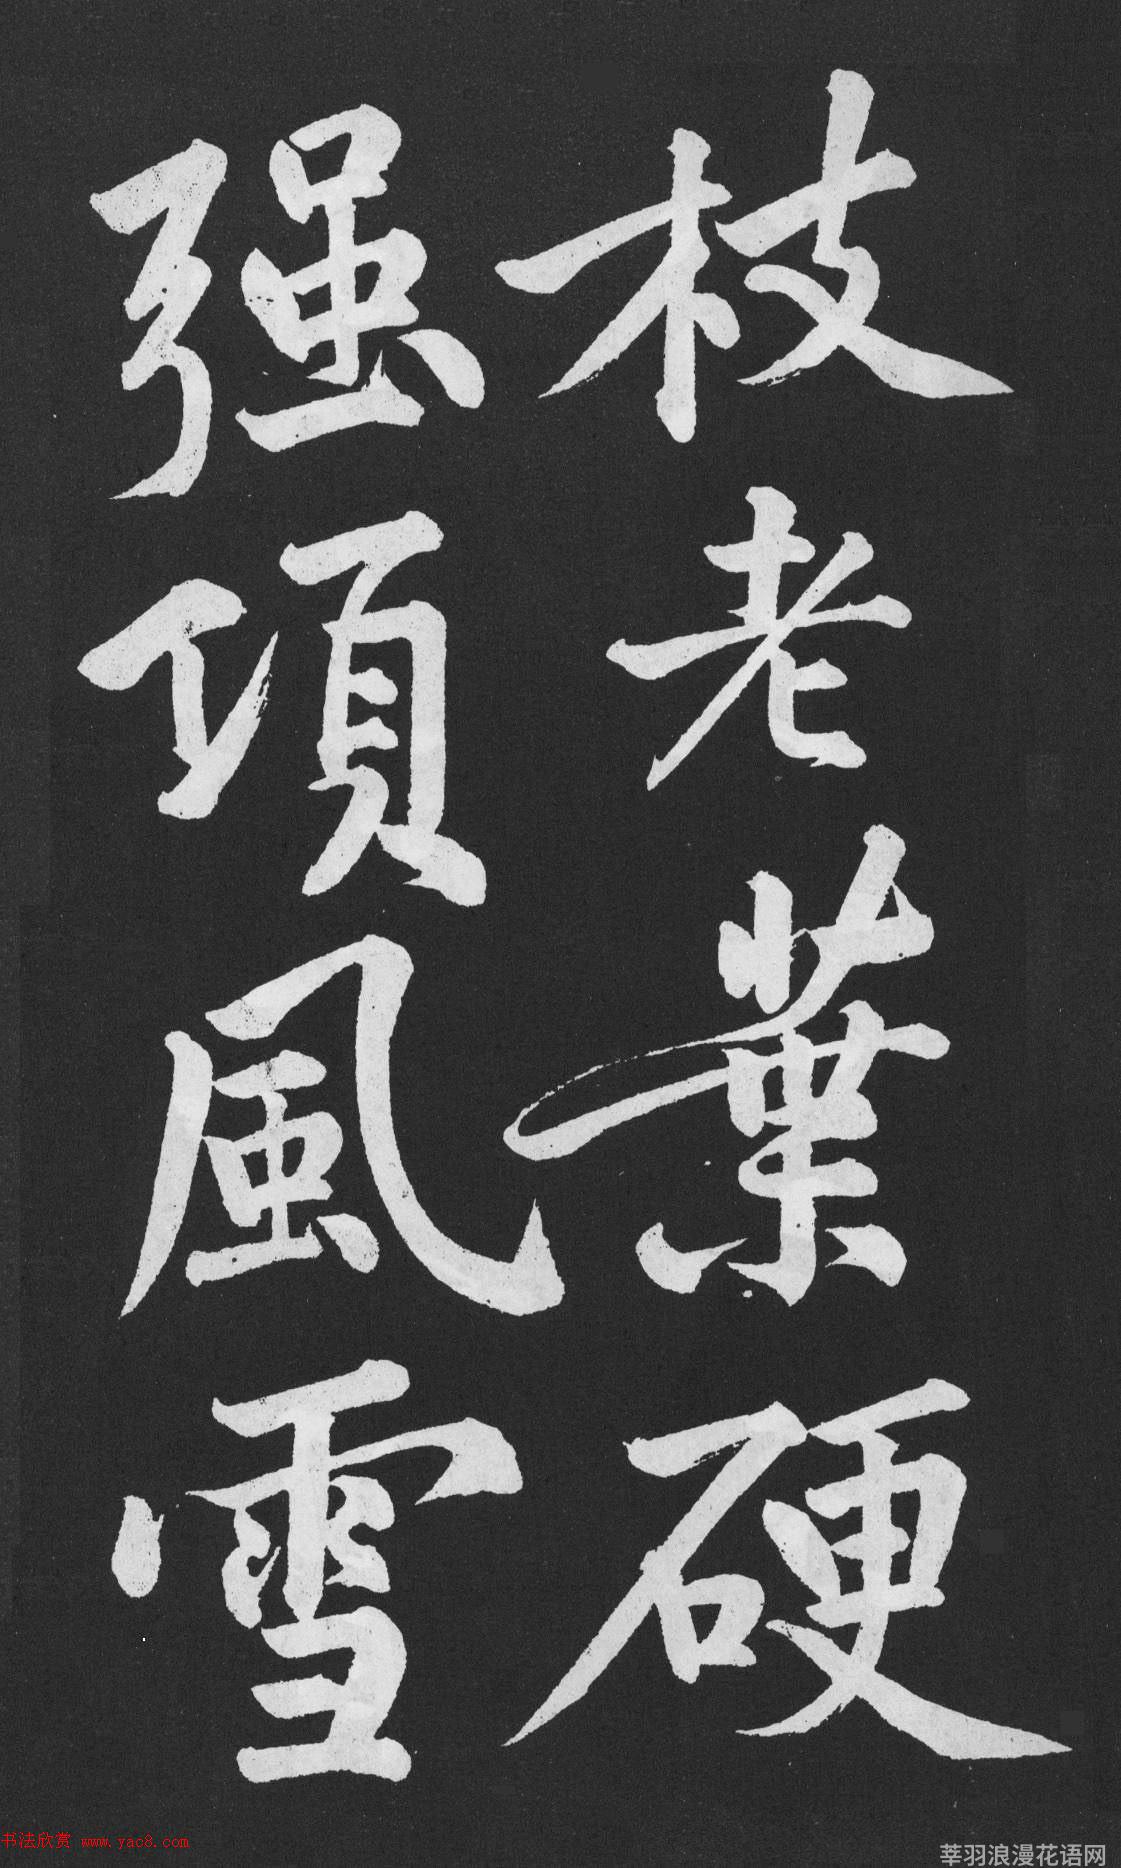 枝老葉硬
强項風雪
书法欣赏 www.yac8.com
莘羽浪漫花语网